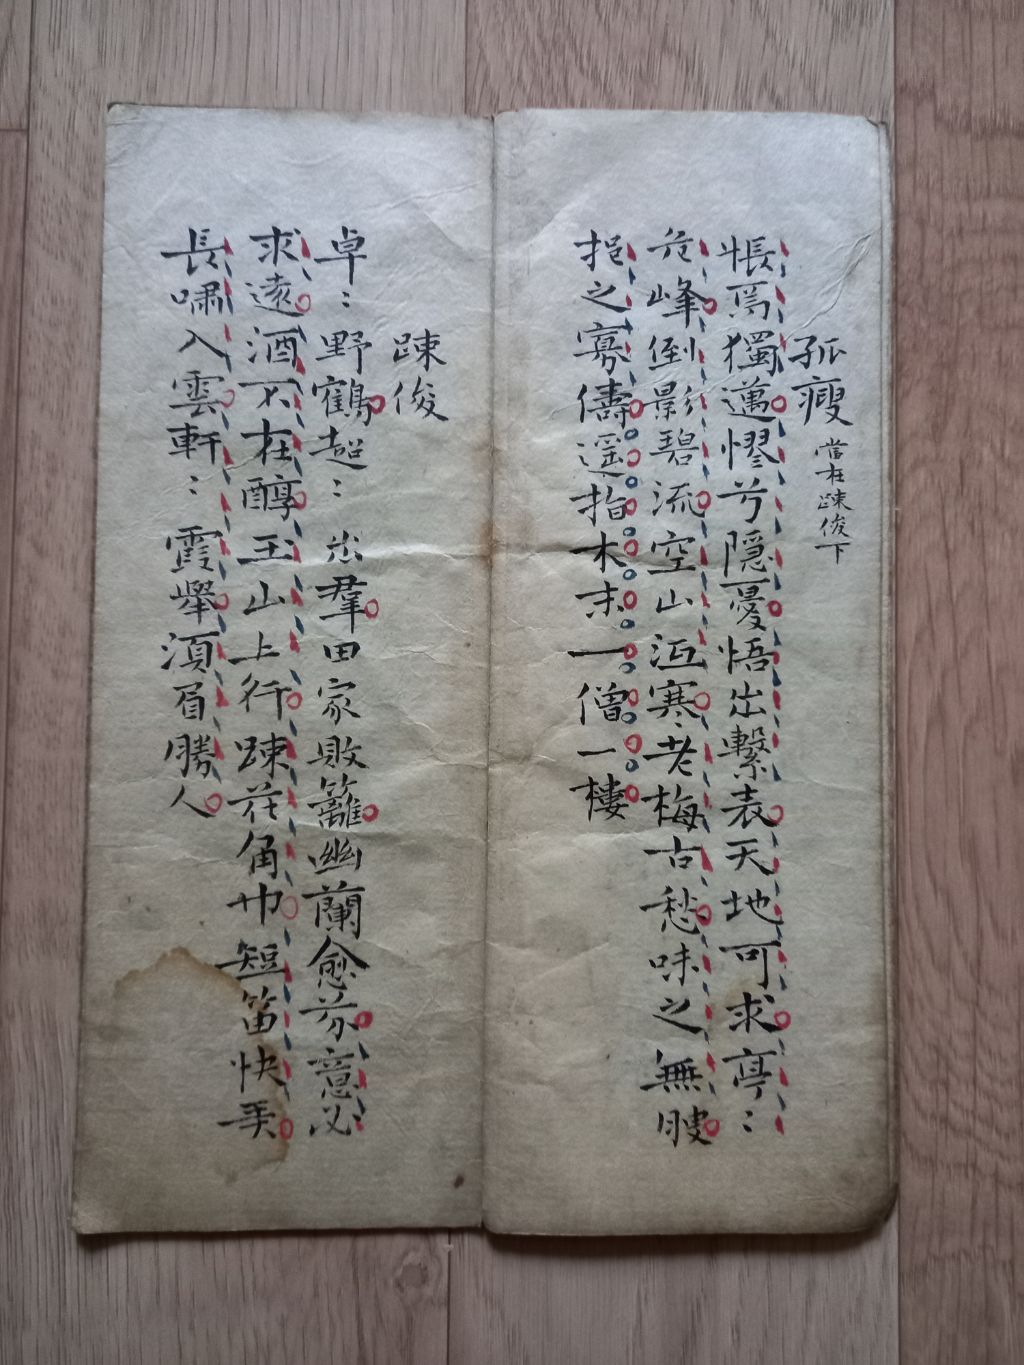 孤瘦 當在踈俊下
悵焉獨邁憀兮隱憂悟出繫表天地可求亭〻
危峰倒影碧流空山沍寒老梅古愁味之無腴
挹之寡儔遥指木末一僧一樓
踈俊
卓〻野鶴超〻出羣田家敗籬幽蘭愈芬意必
求遠酒不在醇玉山上行踈花角巾短笛快弄
長嘯入雲軒〻霞舉湏眉勝人